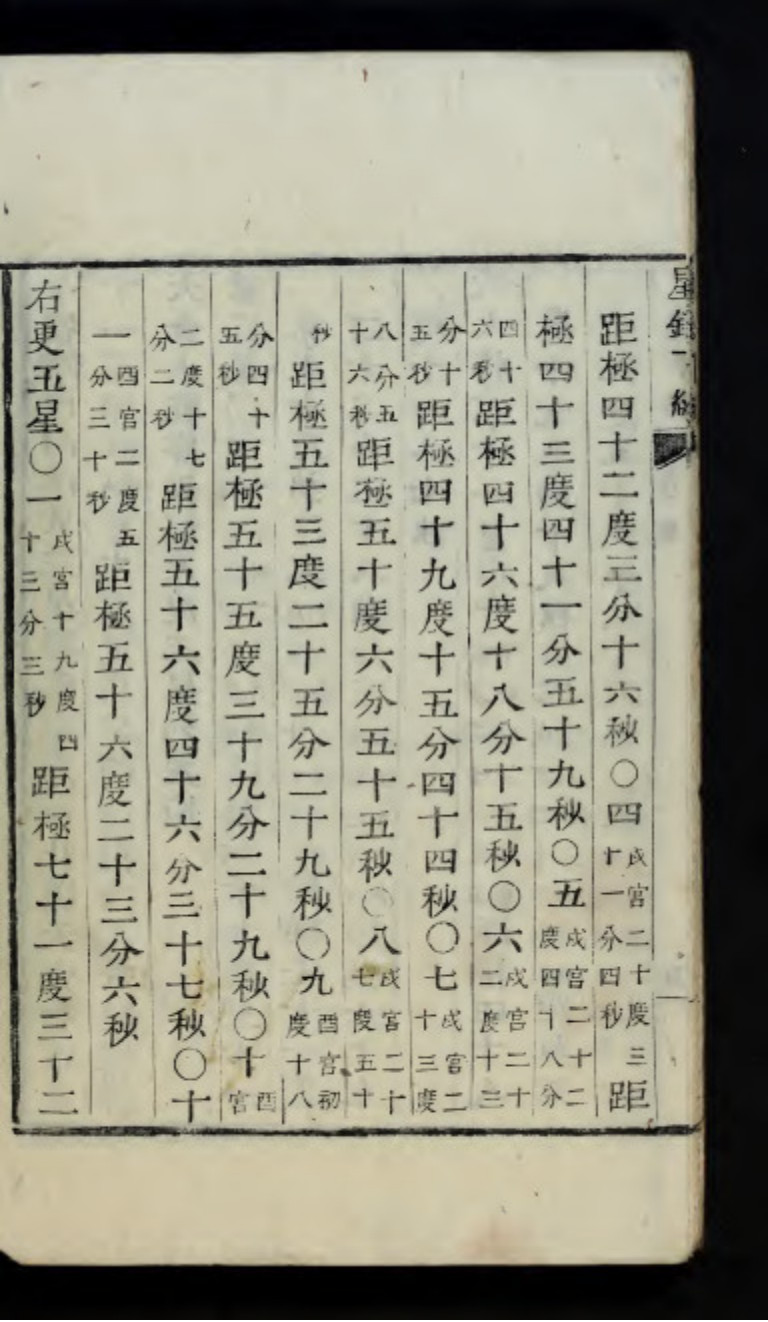 距極四十二度三分十六秒〇四戌宮二十度三十一分四秒距
極四十三度四十一分五十九秒〇五戌宮二十二度四十八分
四十六秒距極四十六度十八分十五秒〇六戌宮二十二度十三
分十五秒距極四十九度十五分四十四秒〇七戌宮二十三度
八分五十六秒距極五十度六分五十五秒〇八戌宮二十七度五十
秒距極五十三度二十五分二十九秒〇九酉宮初度十八
分四十五秒距極五十五度三十九分二十九秒〇十酉宮
二度十七分二秒距極五十六度四十六分三十七秒〇十
一酉宮二度五分三十秒距極五十六度二十三分六秒
右更五星〇一戌宮十九度四十三分三秒距極七十一度三十二